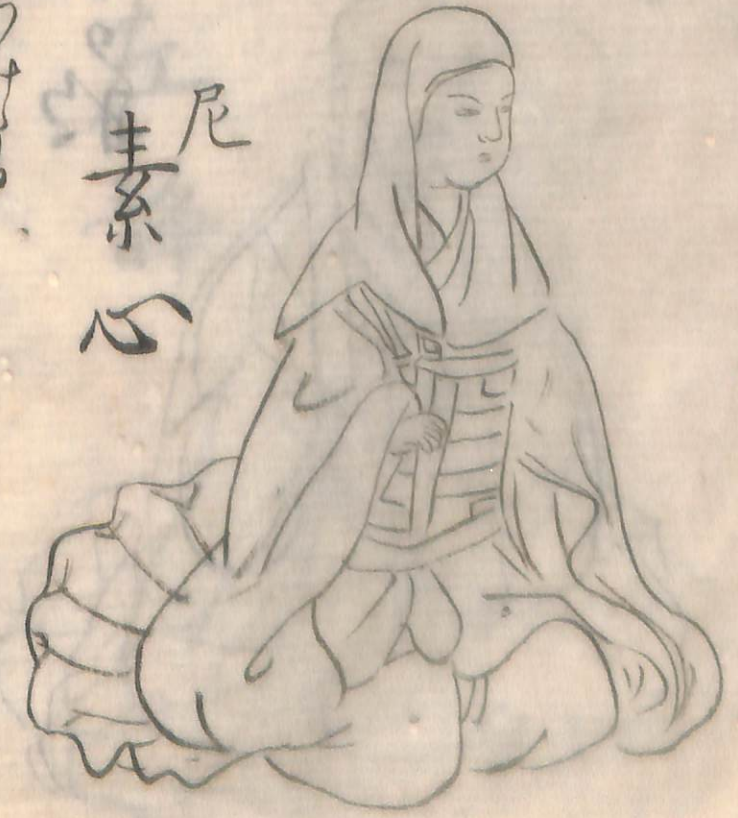 尼
素心